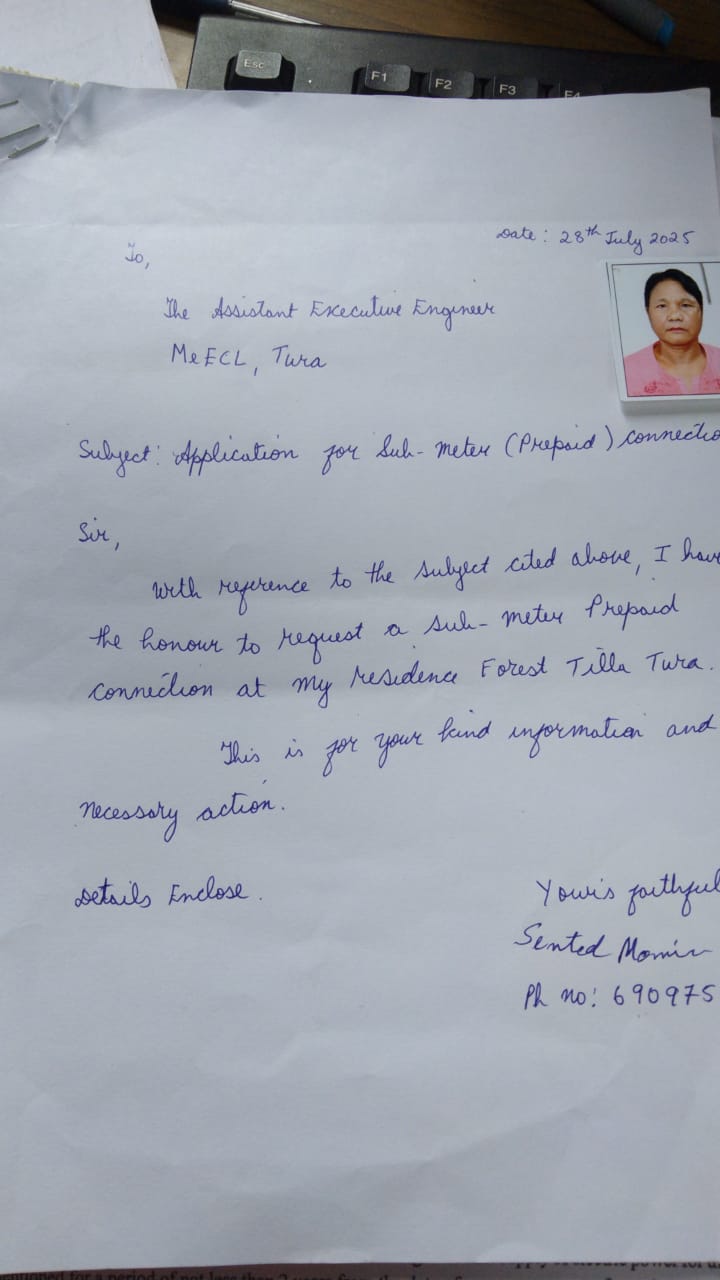 Esc
F1
F2
F3
F4
Date: 28th July 2025
To,
The Assistant Executive Engineer
MeECL, Tura
Subject: Application for Sub-meter (Prepaid) connectio
Sir,
With reference to the subject cited above, I have
the honour to request a sub-meter Prepaid
connection at my residence Forest Tilla Tura.
This is for your kind information and
necessary action.
Details Enclose.
Your's faithful
Sented Momin
Ph no: 690975